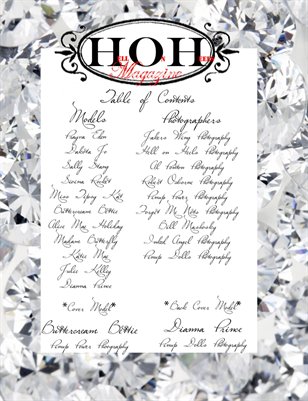 HOH
Magazine
Table of Contents
Models
Photographers
Dakota Jo
Sally Stang
Serena Rocket
Buttercream Bettie
Alice Mae Holiday
Madame Butterfly
Katie Mae
Julie Kelley
Dianna Prince
Jakers Wing Photography
Hell on Heels Photography
Al Photography
Robert Osborne Photography
Pinup Power Photography
Forget Me Nots Photography
Bill
Inked Angel Photography
Pinup Dollz Photography
*Cover Model*
Buttercream Bettie
Pinup Power Photography
*Back Cover Model*
Dianna Prince
Pinup Dollz Photography